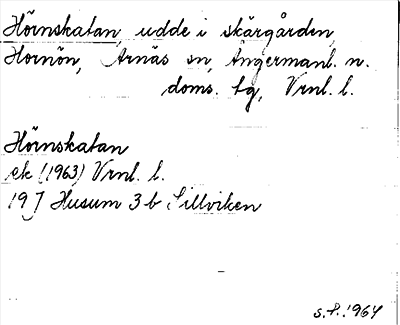 Hörnskatan, udde i skärgården,
Hornön, Arnäs sn, Ångermanl. n.
doms. tg, Vrnl. l.
Hörnskatan
ek (1963) Vrnl. l.
19 J Husum 3 b Sillviken
s. f. 1964